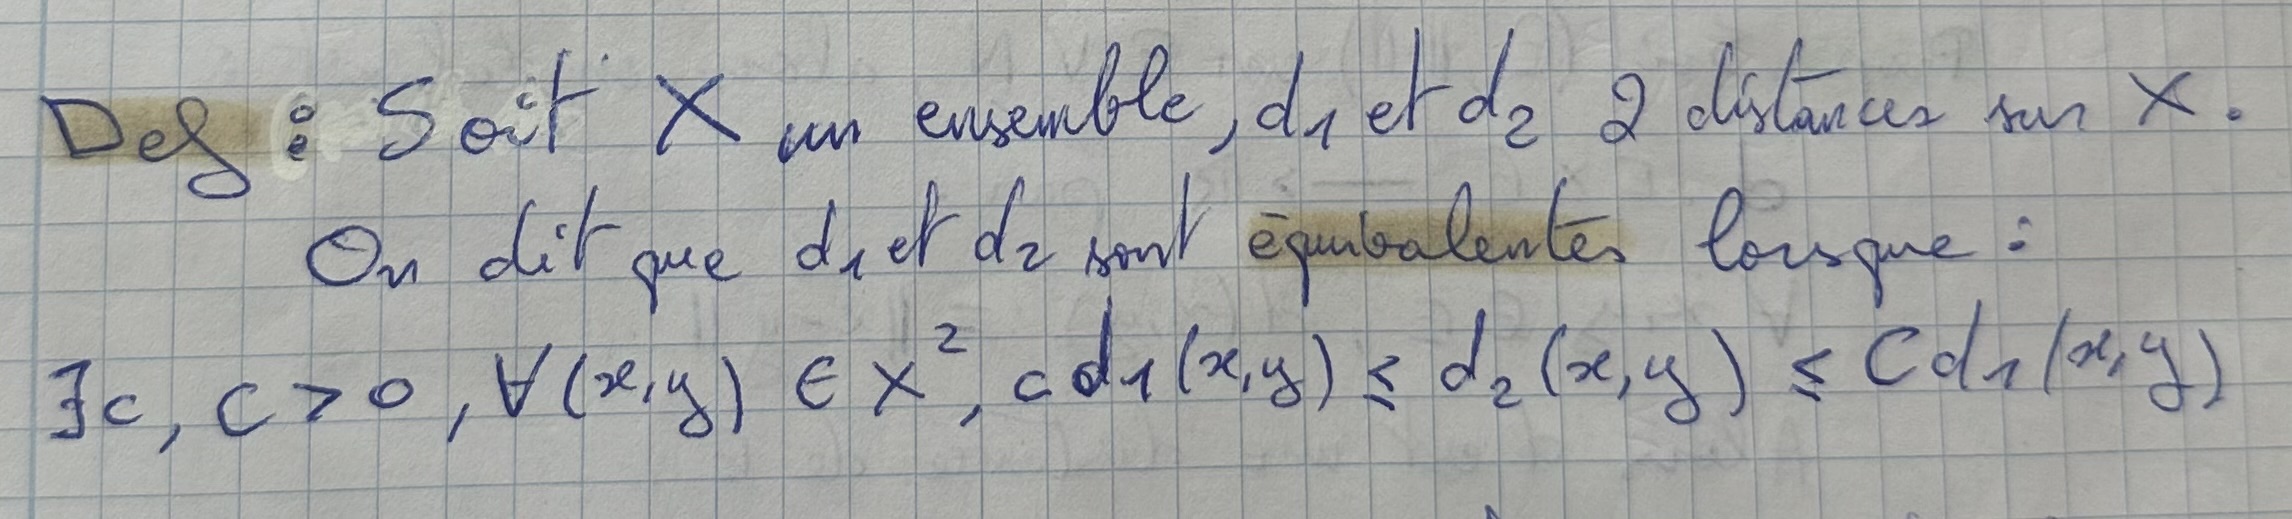 Def : Soit X un ensemble, d₁ et d₂ 2 distances sur X.
On dit que d₁ et d₂ sont équivalentes lorsque :
∃c, C > 0, ∀(x,y) ∈ X², c d₁(x,y) ≤ d₂(x,y) ≤ C d₁(x,y)